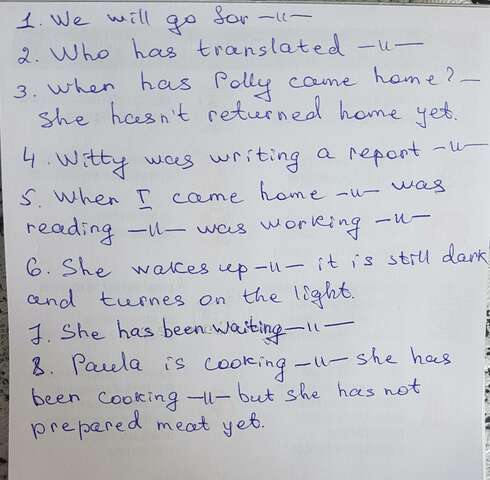 1. We will go for –"–
2. Who has translated –"–
3. When has Polly came home? –
she hasn't returned home yet.
4. Witty was writing a report –"–
5. When I came home –"– was
reading –"– was working –"–
6. She wakes up –"– it is still dark
and turnes on the light.
7. She has been waiting –"–
8. Paula is cooking –"– she has
been cooking –"– but she has not
prepared meat yet.